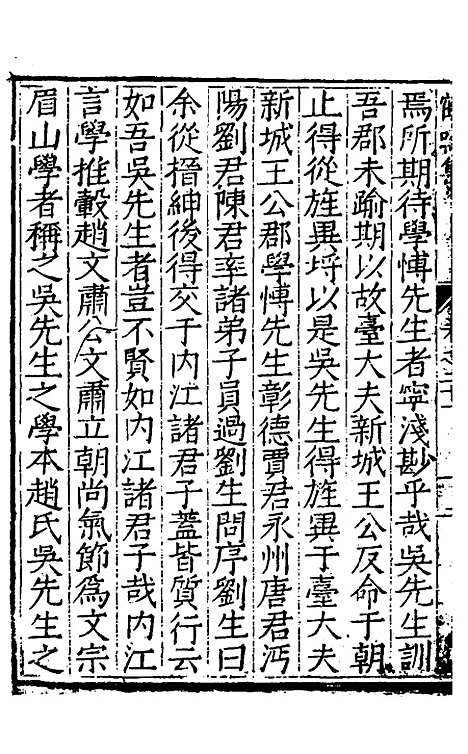 焉所期待學博先生者寧淺尠乎哉吳先生訓
吾郡未踰期以故臺大夫新城王公反命于朝
止得從旌異埒以是吳先生得旌異于臺大夫
新城王公郡學博先生彰德賈君永州唐君沔
陽劉君陳君率諸弟子員過劉生問序劉生曰
余從搢紳後得交于內江諸君子蓋皆質行云
如吾吳先生者豈不賢如內江諸君子哉內江
言學推轂趙文肅公文肅立朝尚氣節為文宗
眉山學者稱之吳先生之學本趙氏吳先生之